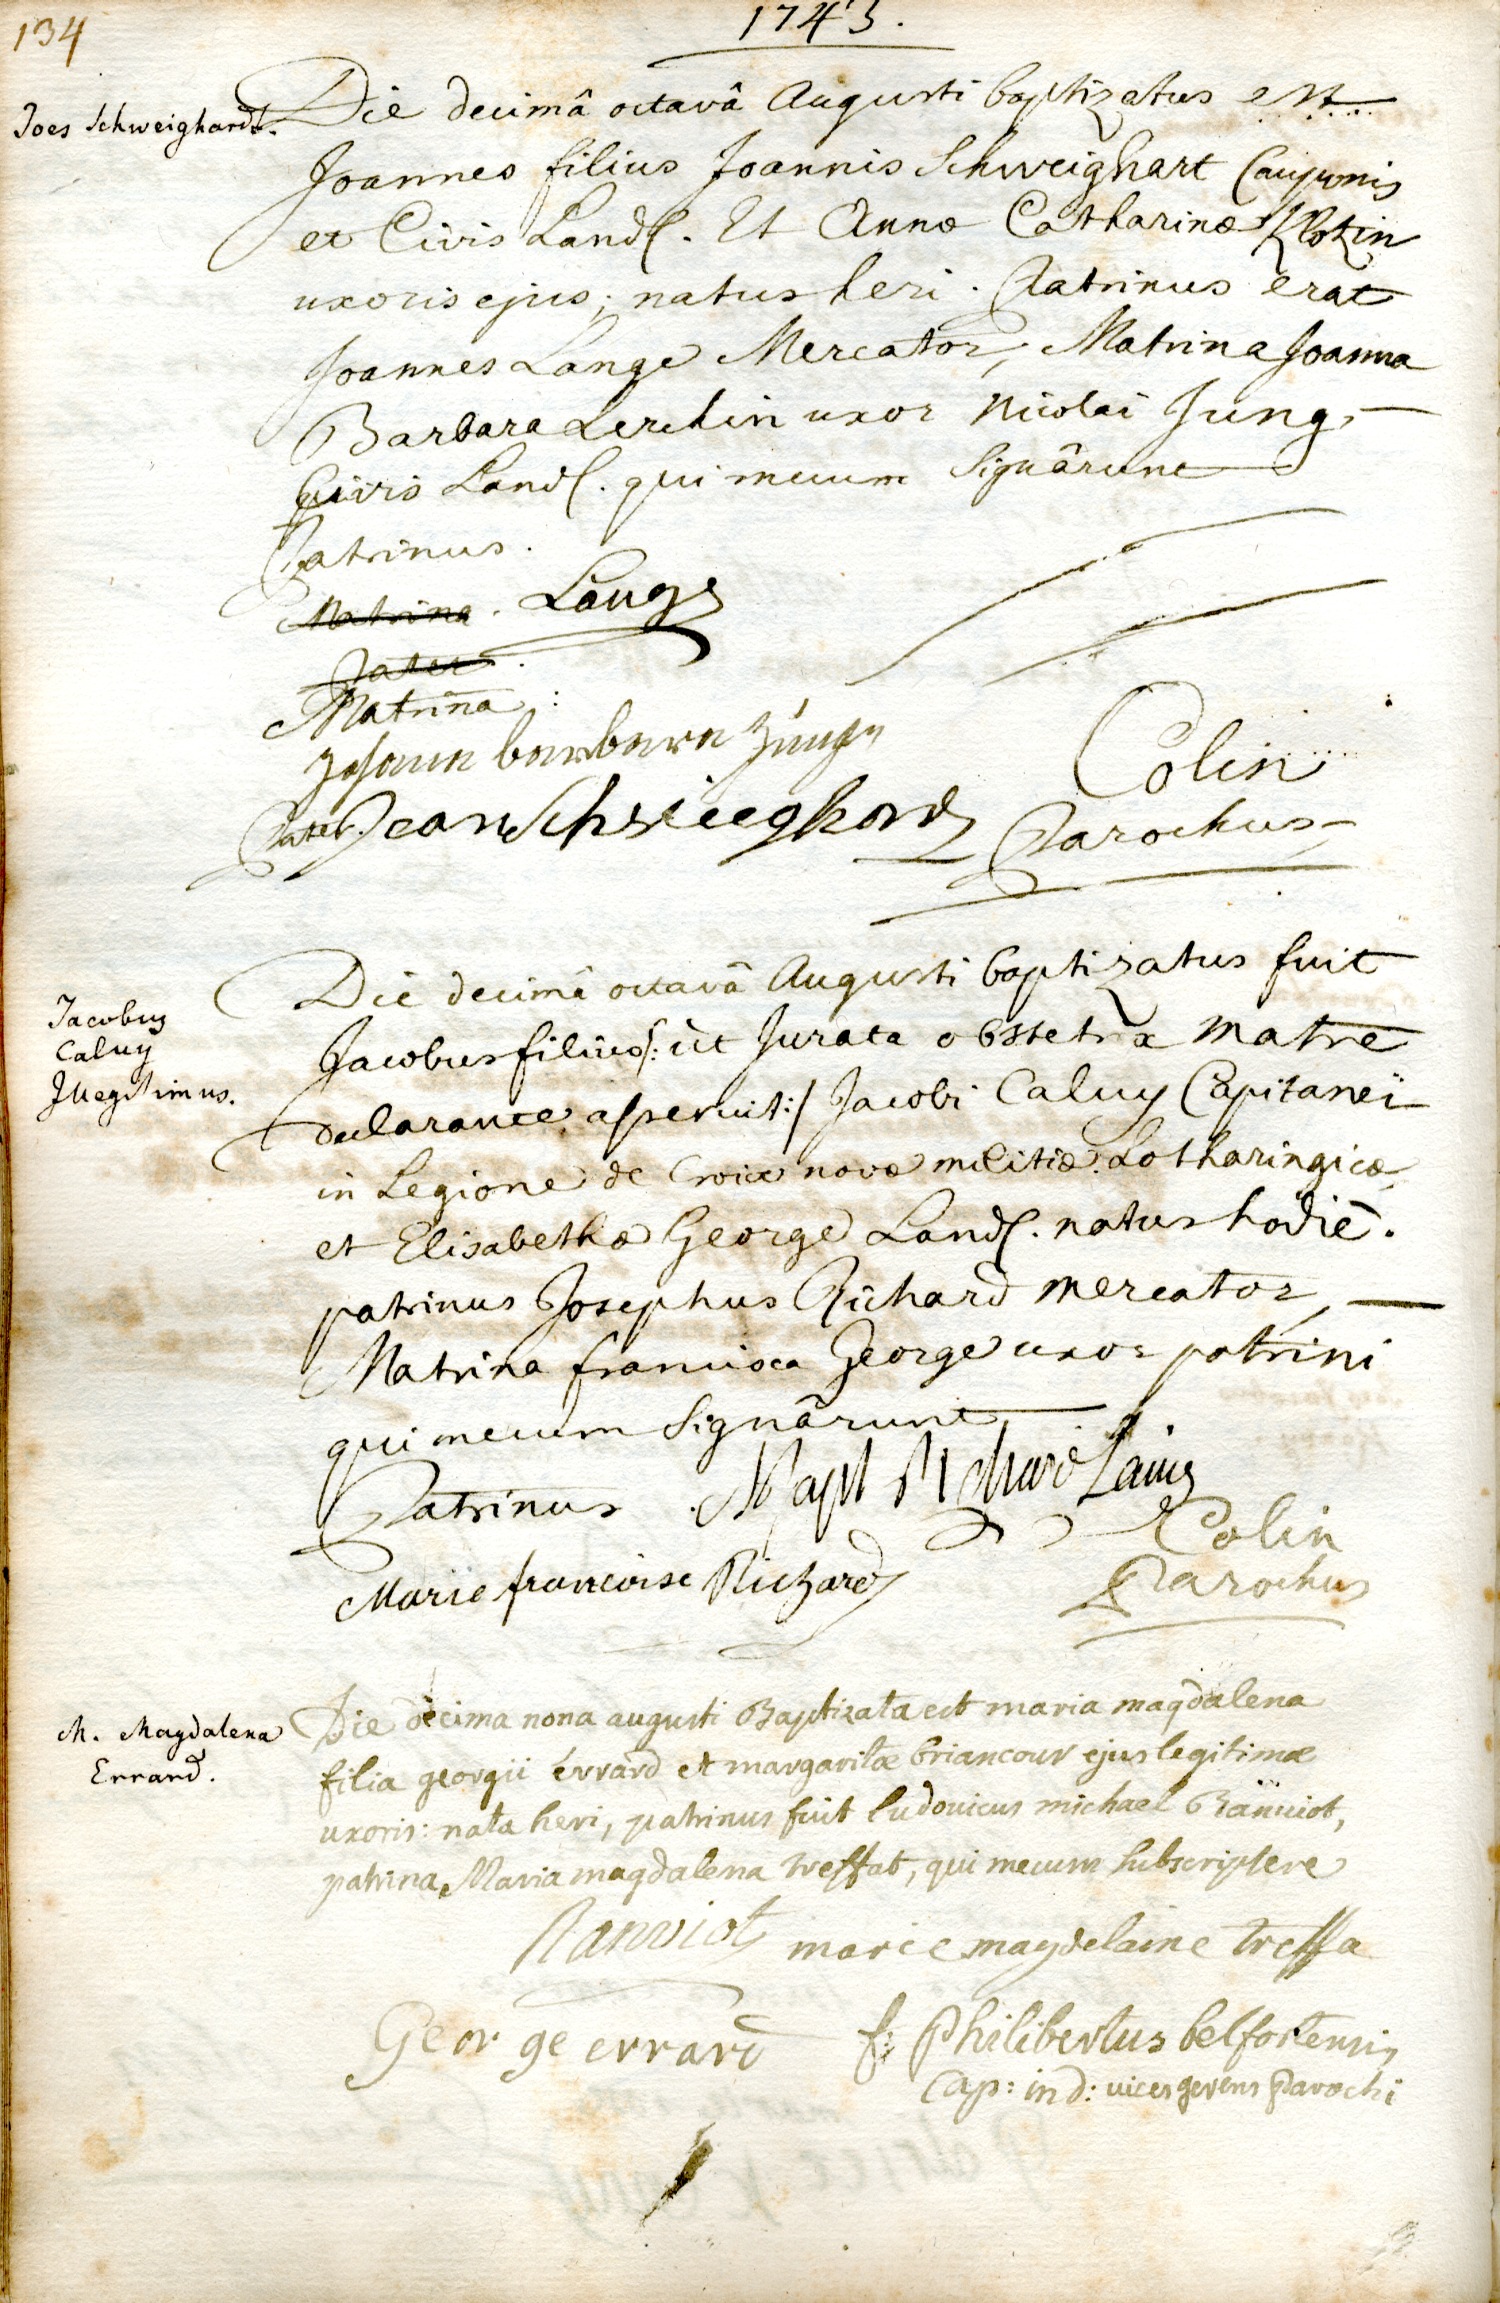 134
1743.
Joes Schweighardt.
Die decimâ octavâ Augusti baptizatus est
Joannes filius Joannis Schweighart Cauponis
et Civis Land. Et Annæ Catharinæ Klotzin
uxoris ejus; natus heri. Patrinus erat
Joannes Lange Mercator, Matrina Joanna
Barbara Lerchin uxor Nicolai Jung,
Civis Land. qui mecum Signârunt
Patrinus.
Matrina. Lang
Pater.
Matrina:
Johana barbara Jung
Pater. Jean Schweighard
Colin
Parochus
Jacobus
Caluy
Illegitimus.
Die decimâ octavâ Augusti baptizatus fuit
Jacobus filius /: ut Jurata obstetrix matre
declarante asseruit :/ Jacobi Caluy Capitanei
in Legione de Croix novæ militiæ Lotharingicæ
et Elisabethæ George Land. natus hodie.
patrinus Josephus Richard mercator,
Matrina francisca George uxor patrini
qui mecum Signârunt
Patrinus
Marie francoise Richard
Colin
Parochus
M. Magdalena
Errard.
Die decima nona augusti Baptizata est maria magdalena
filia georgii errard et margaritæ briancour ejus legitimæ
uxoris: nata heri, patrinus fuit ludovicus michael Ranviot,
patrina Maria magdalena treffat, qui mecum subscripsere
Ranviot marie magdelaine treffa
George errard f: Philibertus belfortensis
Cap: ind: vices gerens Parochi